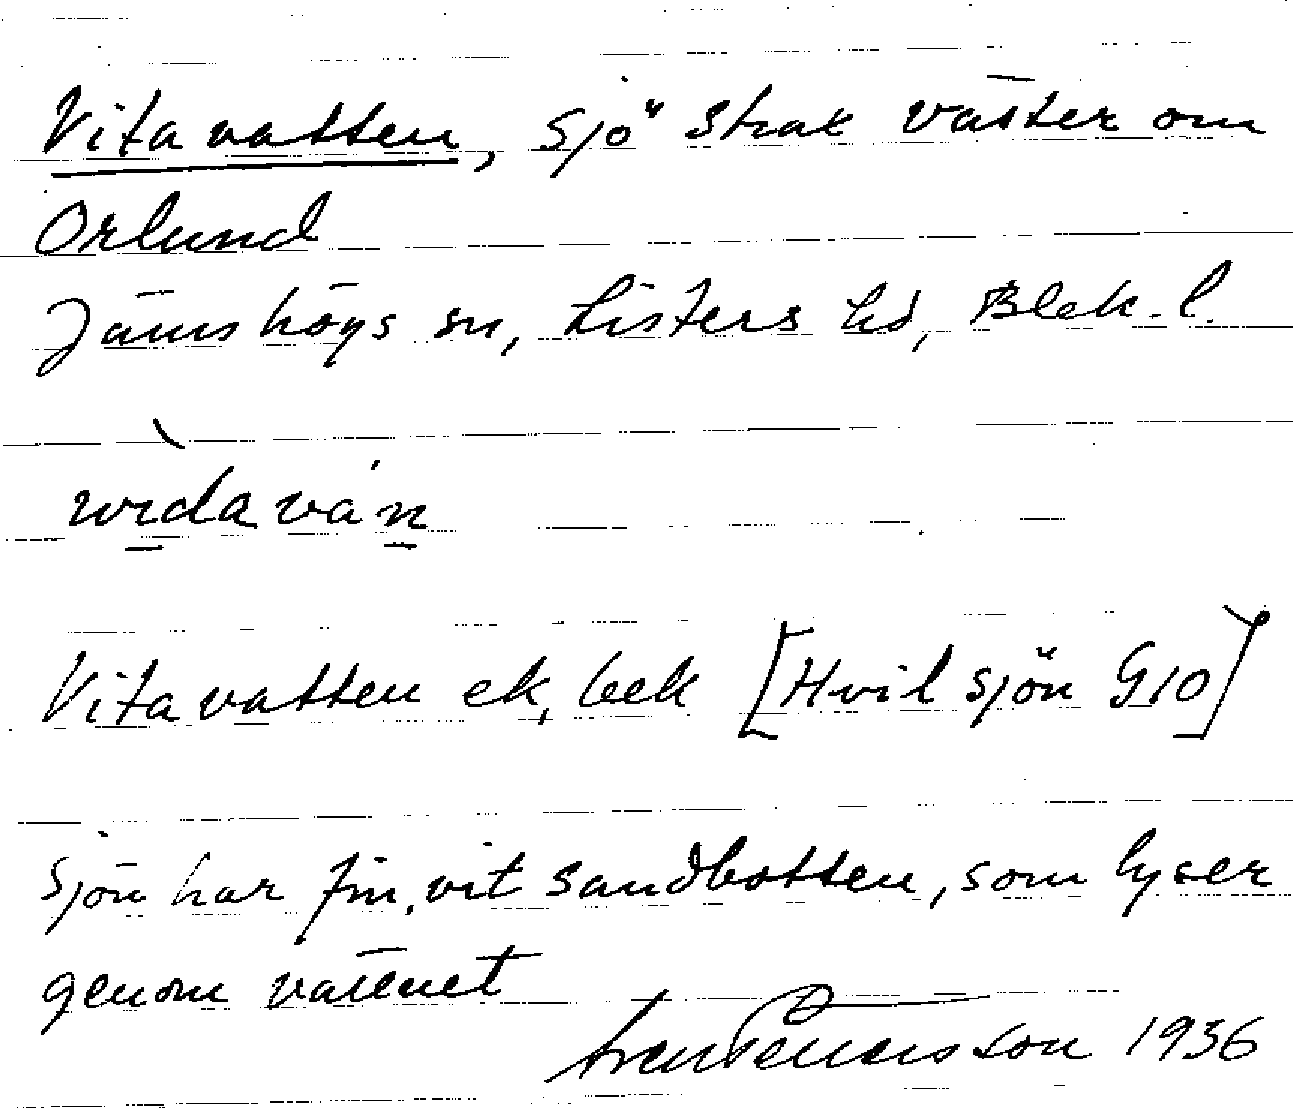 Vitavatten, sjö strax väster om
Orlund
Jämshögs sn, Listers hd, Blek. l.
Vitavatten ek, bek [Hvitsjön G10]
Sjön har fin, vit sandbotten, som lyser
genom vattnet
1936